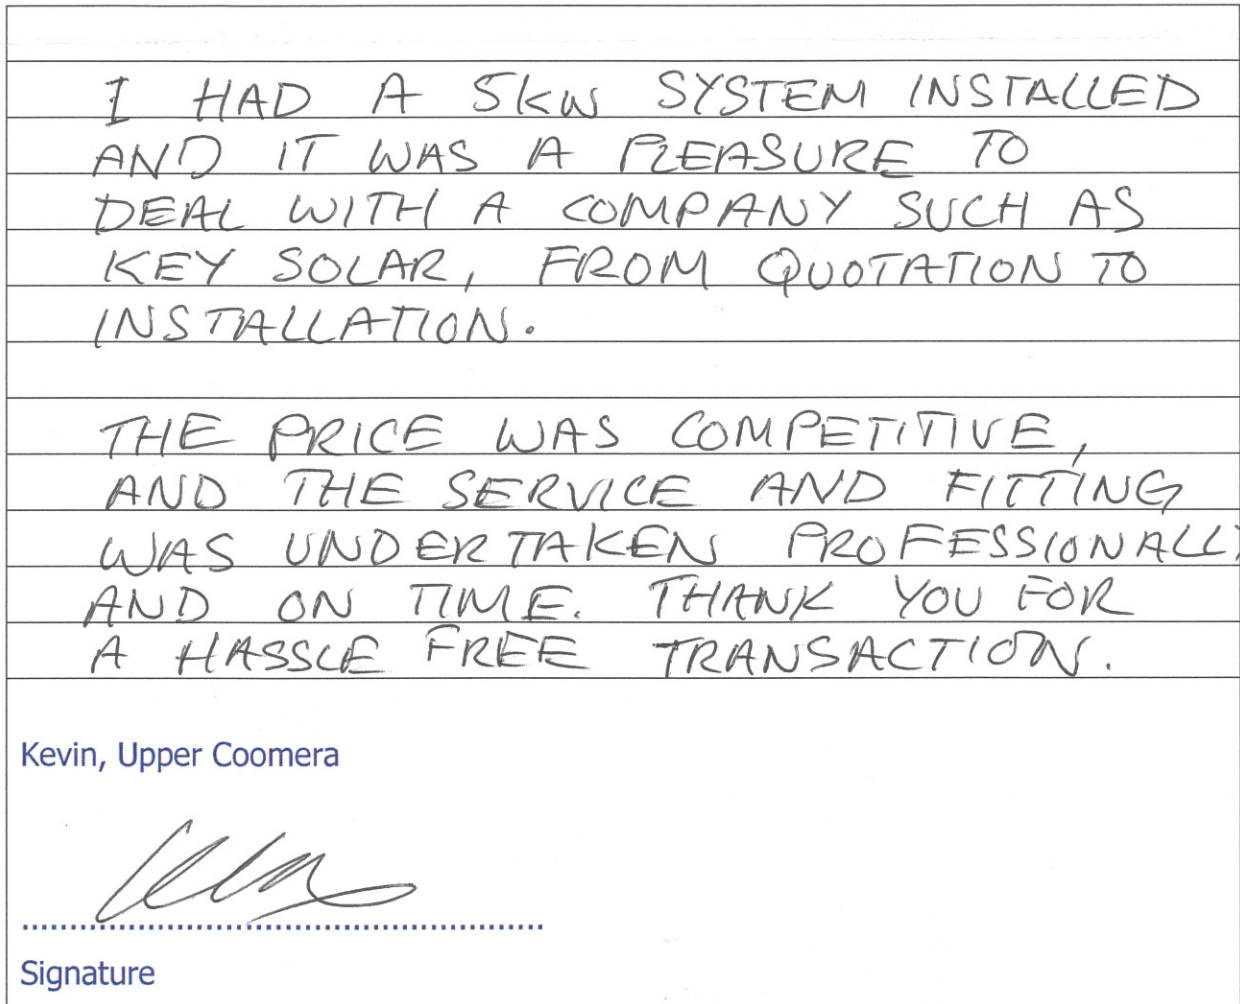 I HAD A 5KW SYSTEM INSTALLED
AND IT WAS A PLEASURE TO
DEAL WITH A COMPANY SUCH AS
KEY SOLAR, FROM QUOTATION TO
INSTALLATION.
THE PRICE WAS COMPETITIVE,
AND THE SERVICE AND FITTING
WAS UNDERTAKEN PROFESSIONALLY
AND ON TIME. THANK YOU FOR
A HASSLE FREE TRANSACTION.
Kevin, Upper Coomera
Signature